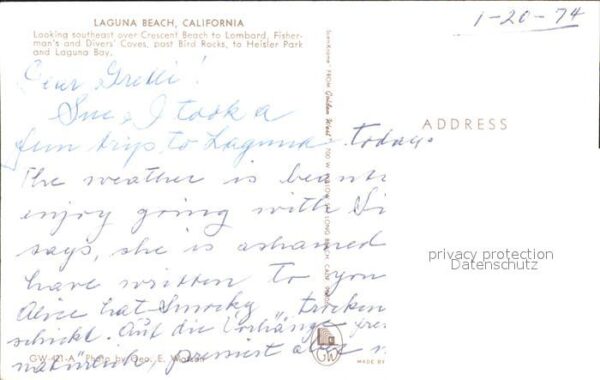 LAGUNA BEACH, CALIFORNIA
Looking southeast over Crescent Beach to Lombard, Fisher-
man's and Divers' Coves, past Bird Rocks, to Heisler Park
and Laguna Bay.
1-20-74
Dear Gretli!
Sue & I took a
fun trip to Laguna today.
The weather is beauti
enjoy going with Si
says, she is ashamed
have written to you
Alice hat Smocky, trocken
schickt. Auf die Vorhänge fre
natürlich, pressiert aber n
GW-421-A Photo by Geo. E. Watson
FROM Golden West
LONG BEACH, CALIF.
ADDRESS
GW
MADE BY
privacy protection
Datenschutz